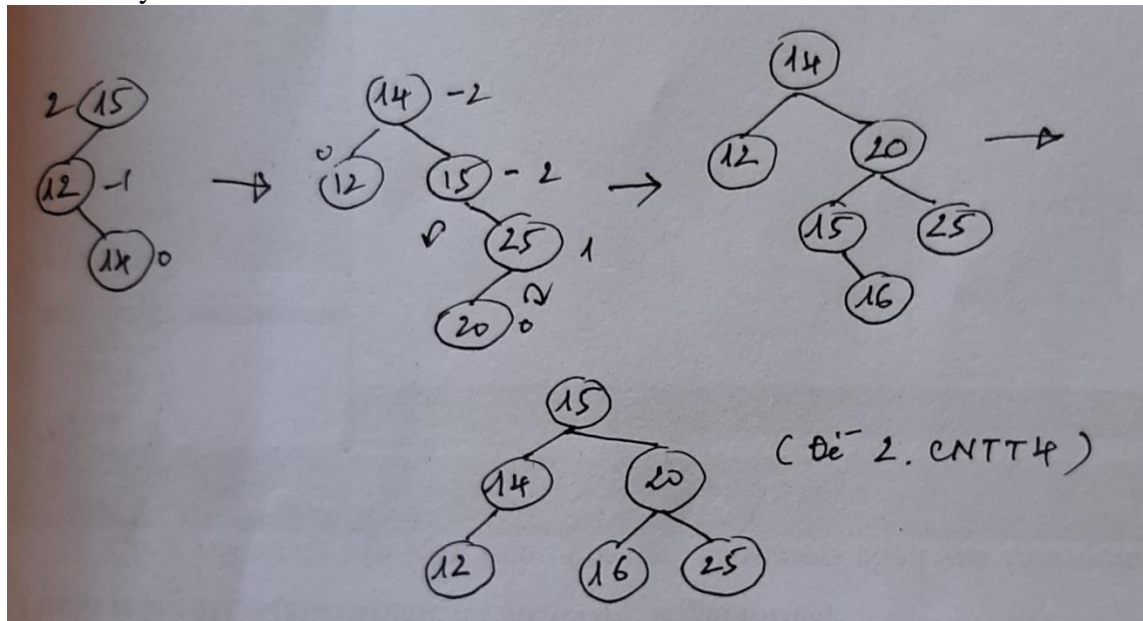 2 15
12 -1
14 0
14 -2
0 12
15 -2
25 1
20 0
14
12 20
15 25
16
15
14 20
12 16 25
(Đề 2. CNTT4)